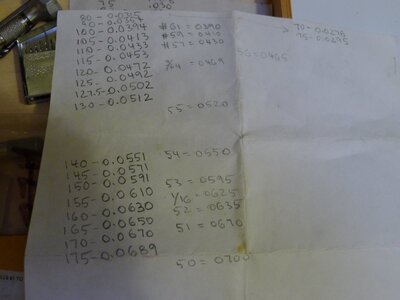 25 .030
80 - 0.0315
90 - 0.0354
100 - 0.0394 #61 = 0390
105 - 0.0413 #59 = 0410
110 - 0.0433 #57 = 0430
115 - 0.0453
120 - 0.0472 3/64 = 0469
125 - 0.0492
127.5 - 0.0502
130 - 0.0512
55 = 0520
140 - 0.0551 54 = 0550
145 - 0.0571
150 - 0.0591 53 = 0595
155 - 0.0610 1/16 = 0625
160 - 0.0630 52 = 0635
165 - 0.0650 51 = 0670
170 - 0.0670
175 - 0.0689
50 = 0700
70 - 0.0276
75 - 0.0295
56 = 0465